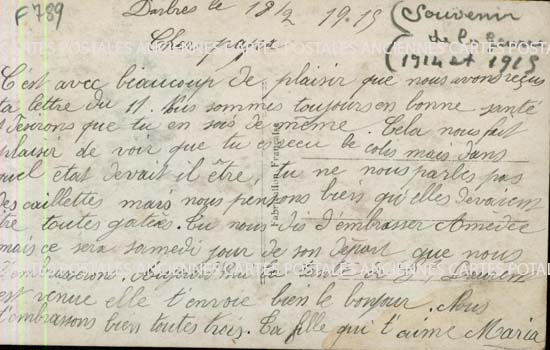 F789
Darbres le 18/2 1915
Souvenir
de la Guerre
1914 et 1915
Cher papa
C'est avec beaucoup de plaisir que nous avons reçus
ta lettre du 11. Nous sommes toujours en bonne santé
désirons que tu en sois de même. Cela nous fait
plaisir de voir que tu as reçu le colis mais dans
quel état devait il être, tu ne nous parles pas
des caillettes mais nous pensons biens qu'elles devaient
être toutes gatées. Tu nous dis d'embrasser Amédée
mais ce sera samedi jour de son départ que nous
l'embrasserons. Aujourd'hui
est venue elle t'envoie bien le bonjour. Nous
t'embrassons bien toutes trois. Ta fille qui t'aime Maria
Fabrication Française
CARTES POSTALES ANCIENNES